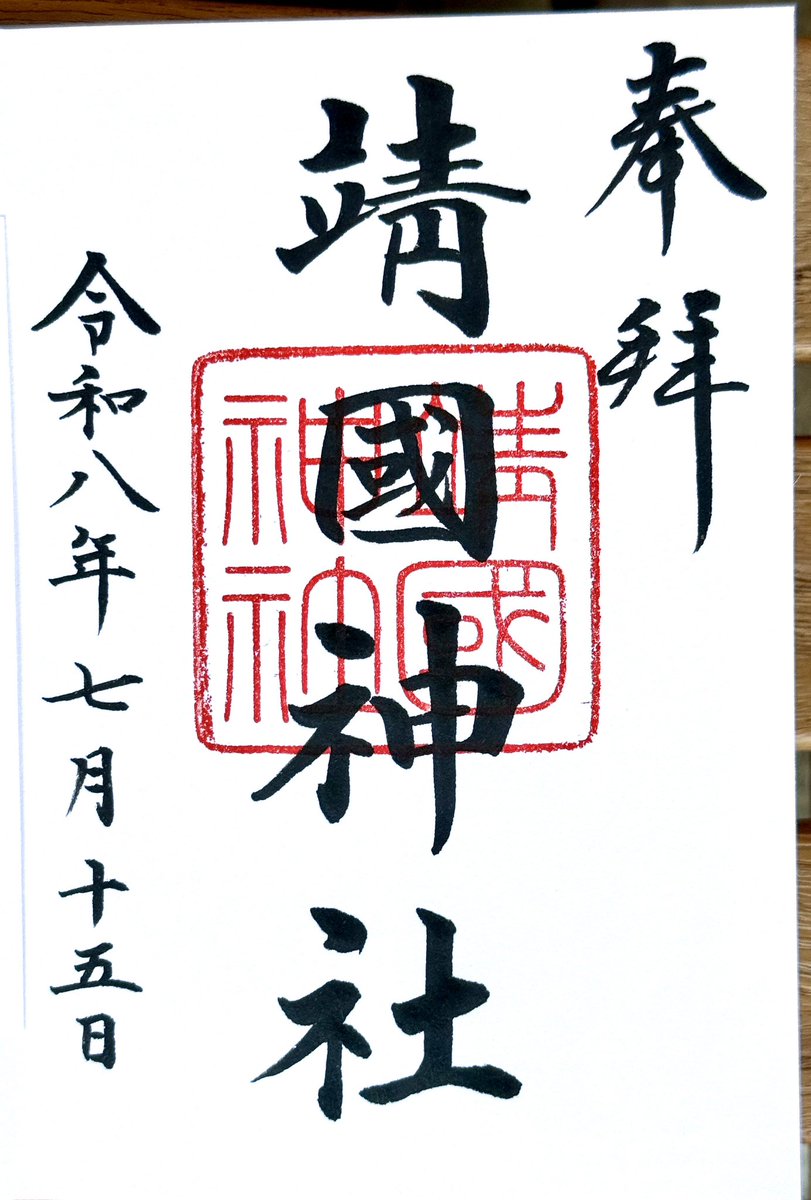 奉拝
靖國神社
靖國
令和八年七月十五日